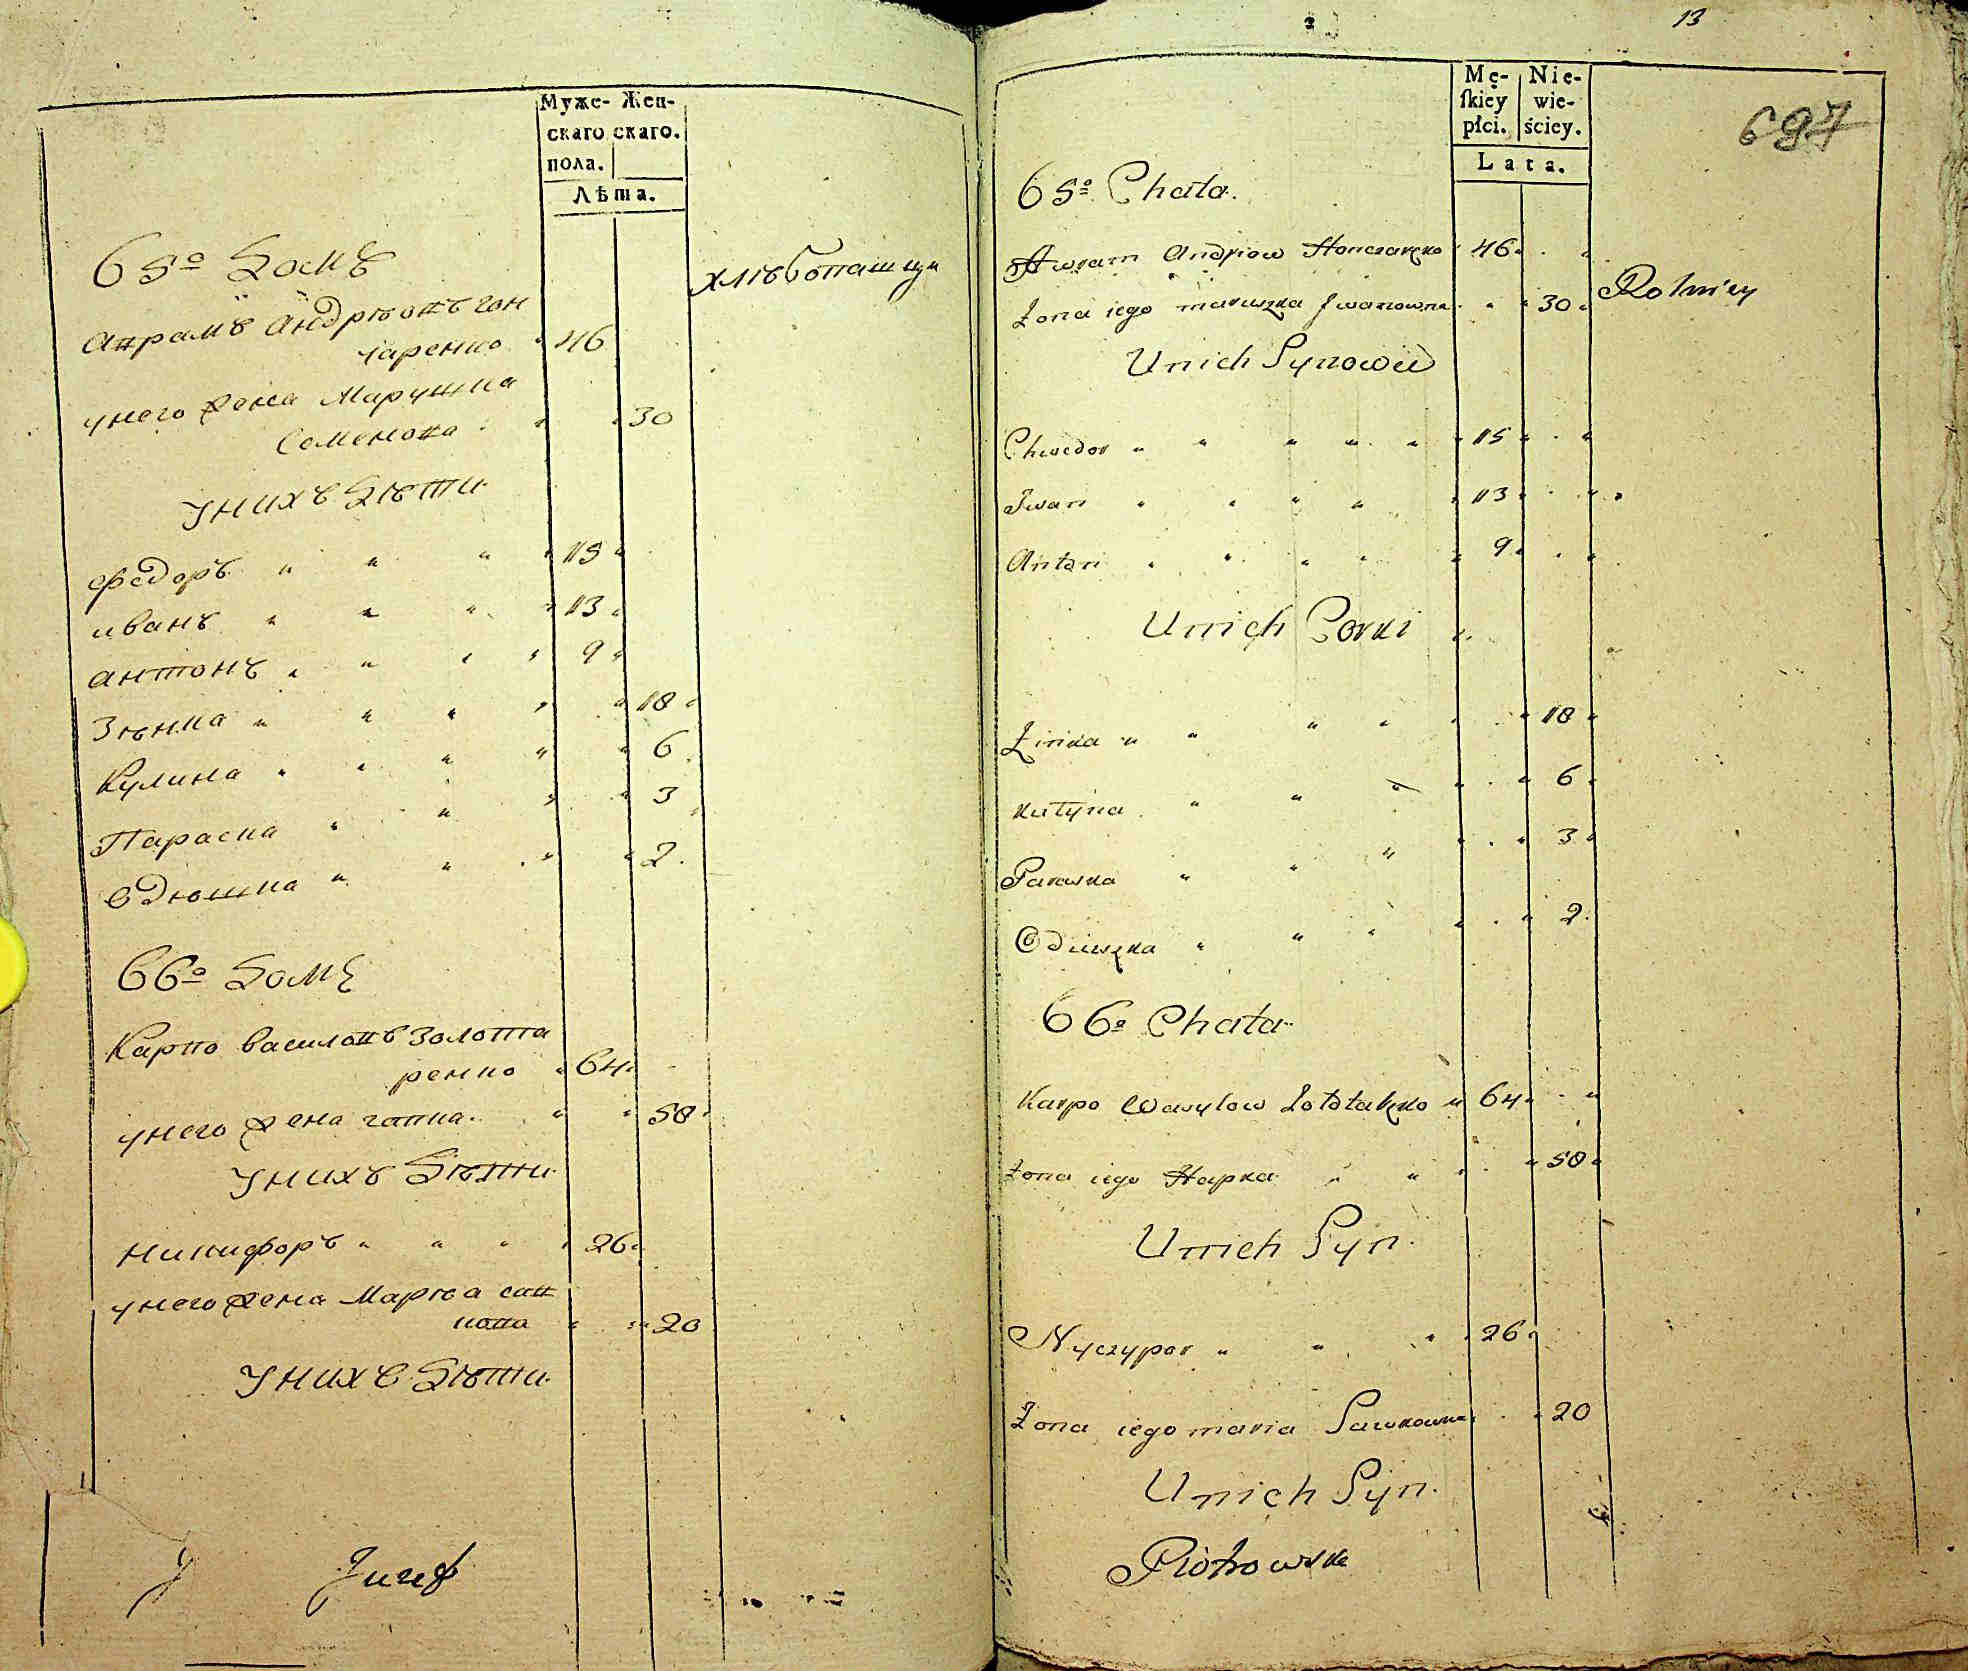 Муже- Жен-
скаго скаго.
пола.
Лѣта.
65º Домъ
Аврамъ Андрѣовъ гон
чаренко 46
хлѣбопашци
унего жена Марушка
Семенова 30
Унихъ Дѣти
Федоръ " " " 15
иванъ " " " 13
антонъ " " " 9
Зѣнка " " " 18
Кулина " " " 6
Параска " " 3
Одюшка " " 2
66º Домъ
Карпо василовъ Золота
ренко 64
унего жена гапка 50
Унихъ Дѣти
Никифоръ " " " 26
унего жена Марѣа сав
кова 20
Унихъ Дѣти
Juzef
13
Mę- Nie-
skiey wie-
płci. ściey.
Lata.
697
65º Chata.
Awram Andriow Honczaręko 46
Żona iego maruszka Jwanowna 30 Rolnicy
Unich Synowie
Chwedor " " " " " 15
Jwan " " " " 13
Anton " " " " 9
Unich Corki
Zinka " " " " 18
Kulyna " " " 6
Paraska " " " 3
Odiuszka " " " 2
66º Chata
Karpo Wasylow Zolotaręko 64
Żona iego Hapka " " 50
Unich Syn
Nyczypor " " " 26
Żona iego maria Sawkowna 20
Unich Syn.
Piotrowski